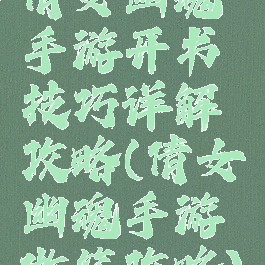 倩女幽魂
手游开书
技巧详解
攻略(倩女
幽魂手游
攻略)